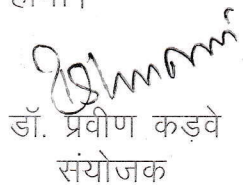 डॉ. प्रवीण कड़वे
संयोजक